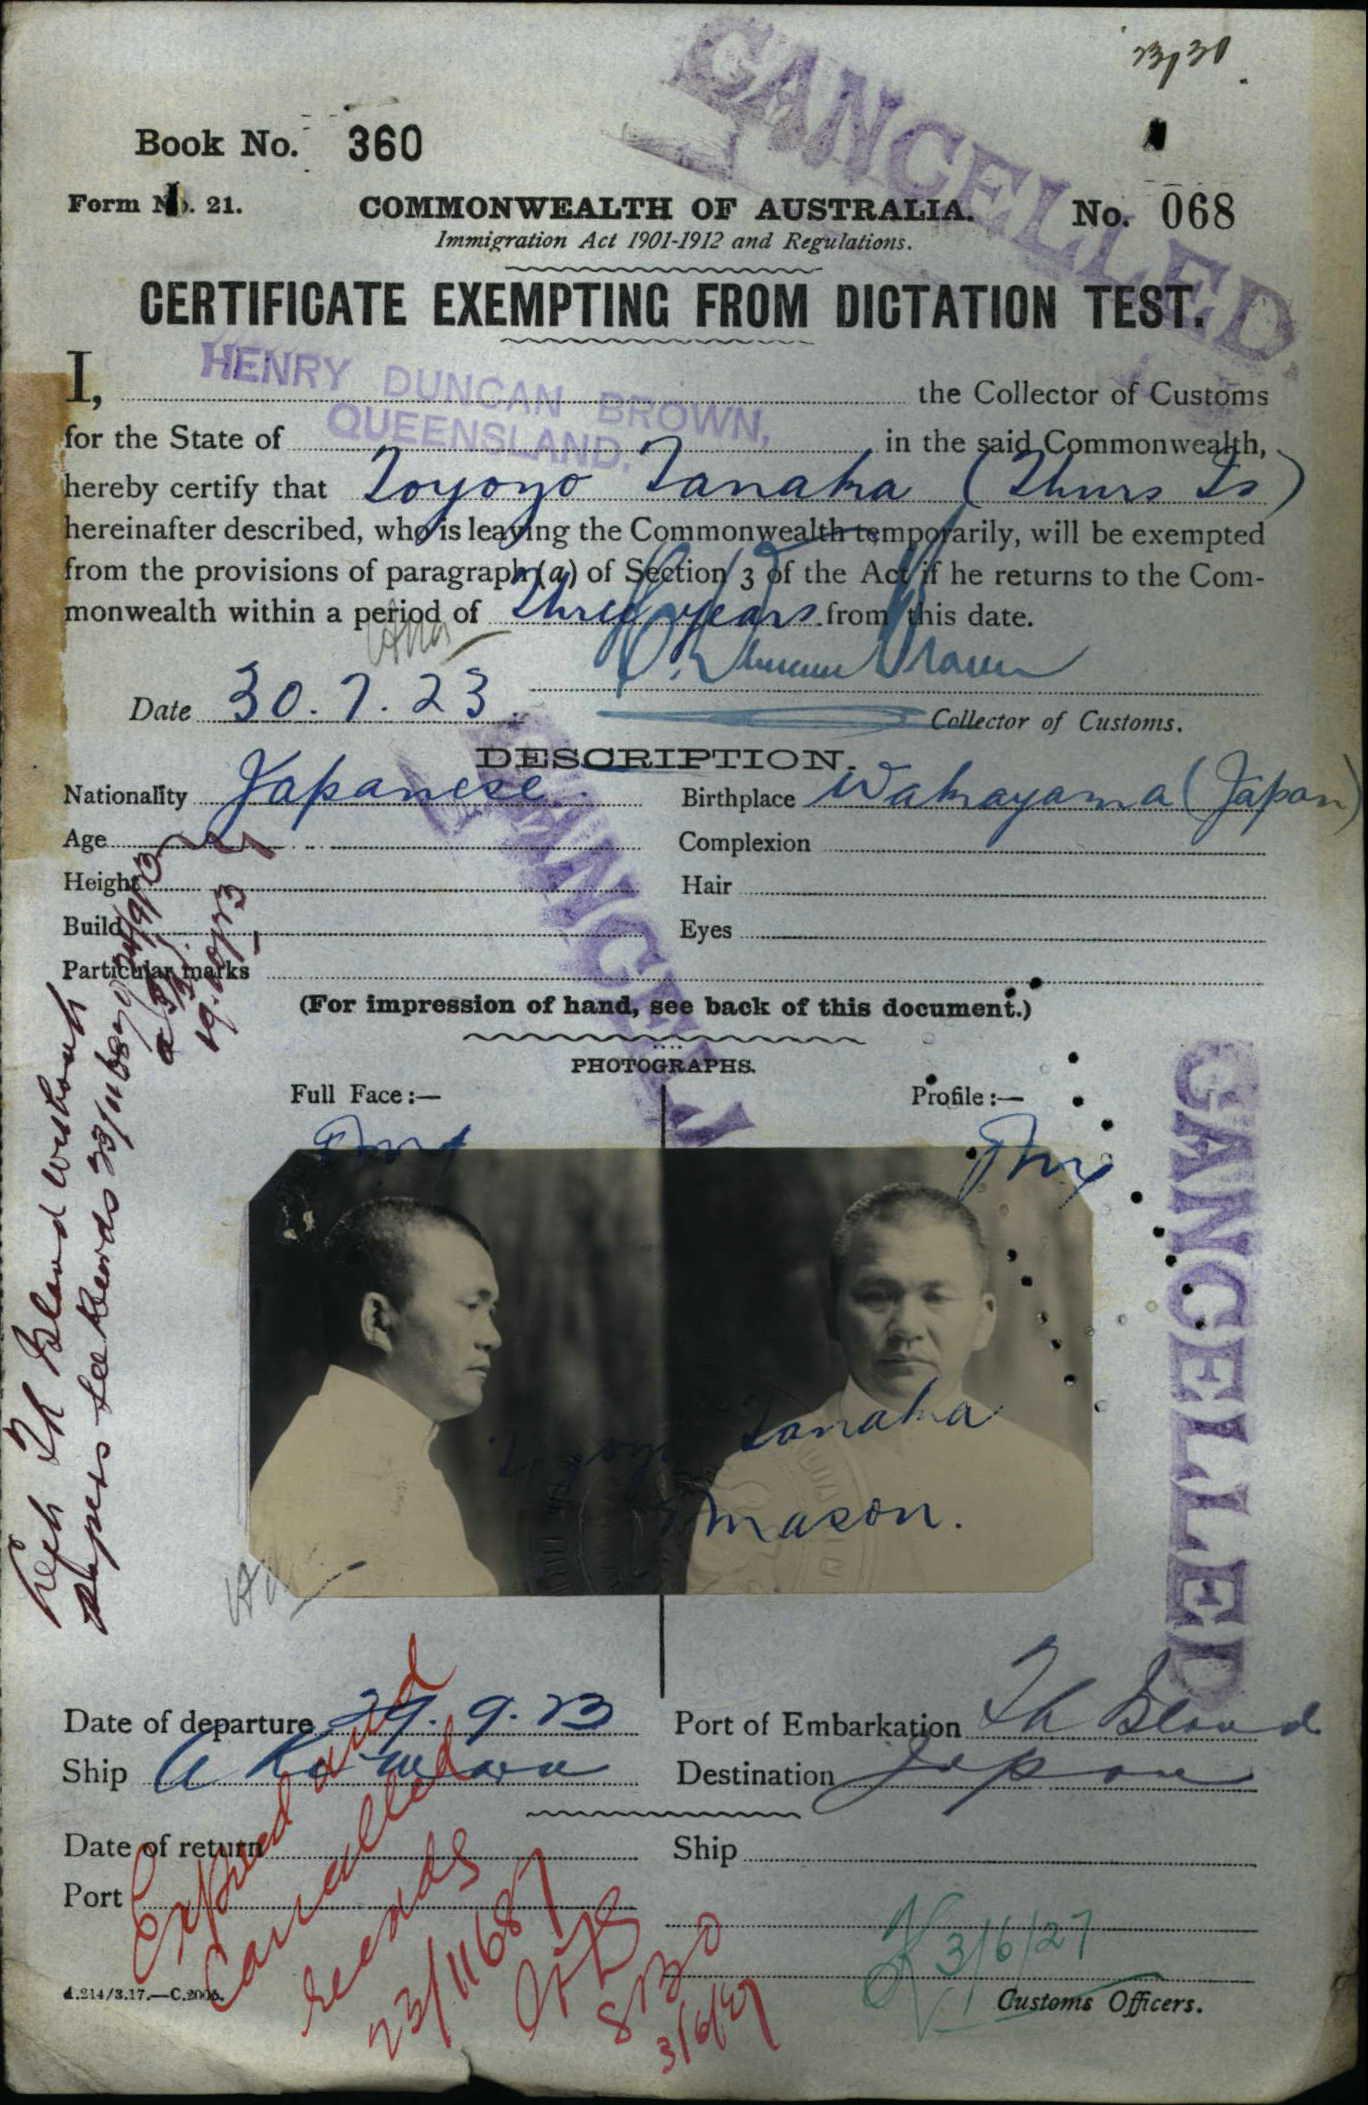 23/30
CANCELLED.
Book No. 360
Form No. 21.
COMMONWEALTH OF AUSTRALIA.
No. 068
Immigration Act 1901-1912 and Regulations.
CERTIFICATE EXEMPTING FROM DICTATION TEST.
HENRY DUNCAN BROWN,
I, the Collector of Customs
QUEENSLAND.
for the State of in the said Commonwealth,
hereby certify that Toyoyo Tanaka (Thurs Is)
hereinafter described, who is leaving the Commonwealth temporarily, will be exempted
from the provisions of paragraph (a) of Section 3 of the Act if he returns to the Com-
monwealth within a period of three years from this date.
H. Duncan Brown
Date 30.7.23
Collector of Customs.
DESCRIPTION.
Nationality Japanese.
Birthplace Wakayama (Japan)
Age
Complexion
Height
Hair
Build
Eyes
Particular marks
(For impression of hand, see back of this document.)
CANCELL
PHOTOGRAPHS.
Full Face:—
Profile:—
Toyoyo Tanaka
Mason.
CANCELLED
Kept Th Island without
papers see Records 23/11687 24/9/23
19.10/23
Date of departure 29.9.23
Port of Embarkation Th Island
Ship Aki Maru
Destination Japan
Date of return
Ship
Port
Expired and
Cancelled
records
23/11687
3/6/27
3/6/27
Customs Officers.
d.214/3.17.—C.2006.